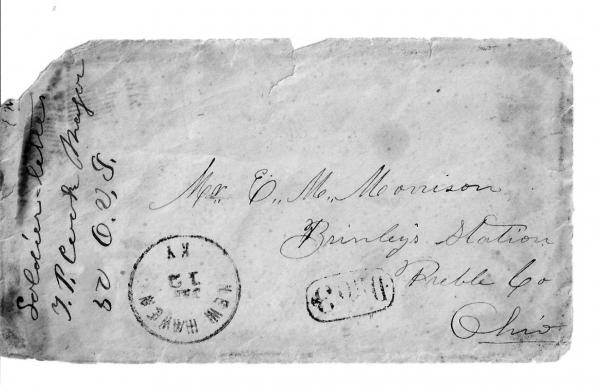 Soldier-letter
Major
O. V. I.
Mr. E. M. Morrison
Brinley's Station
Preble Co
Ohio
NEW HAVEN
KY
15
Due 3